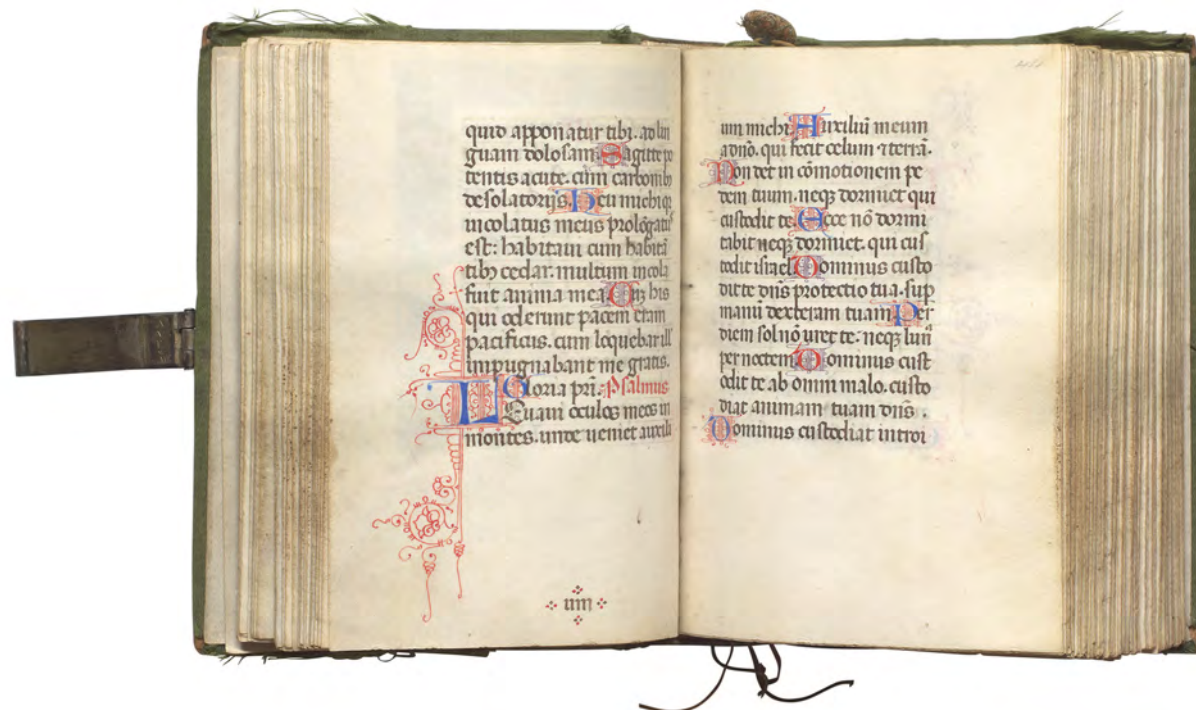 quid apponatur tibi. ad lin
guam dolosam. Sagitte po
tentis acute. cum carbonibꝫ
desolatorijs. Heu michi qꝫ
incolatus meus prolõgatꝰ
est: habitaui cum habitã
tibꝫ cedar. multum incola
fuit anima mea. Cuʒ his
qui oderunt pacem eram
pacificus. cum loquebar ill'
impugnabant me gratis.
Gloria pr̃i. Psalmus
LEuaui oculos meos in
montes. unde ueniet auxili
um michi. Auxiliũ meum
a dño. qui fecit celum ⁊ terrã.
Non det in cõmotionem pe
dem tuum. neqꝫ dormiet qui
custodit te. Ecce nõ dormi
tabit neqꝫ dormiet. qui cus
todit israel. Dominus custo
dit te dñs protectio tua. sup
manũ dexteram tuam. Per
diem sol nõ uret te. neqꝫ lunã
per noctem. Dominus cust
odit te ab omni malo. custo
diat animam tuam dñs.
Dominus custodiat introi
iiii